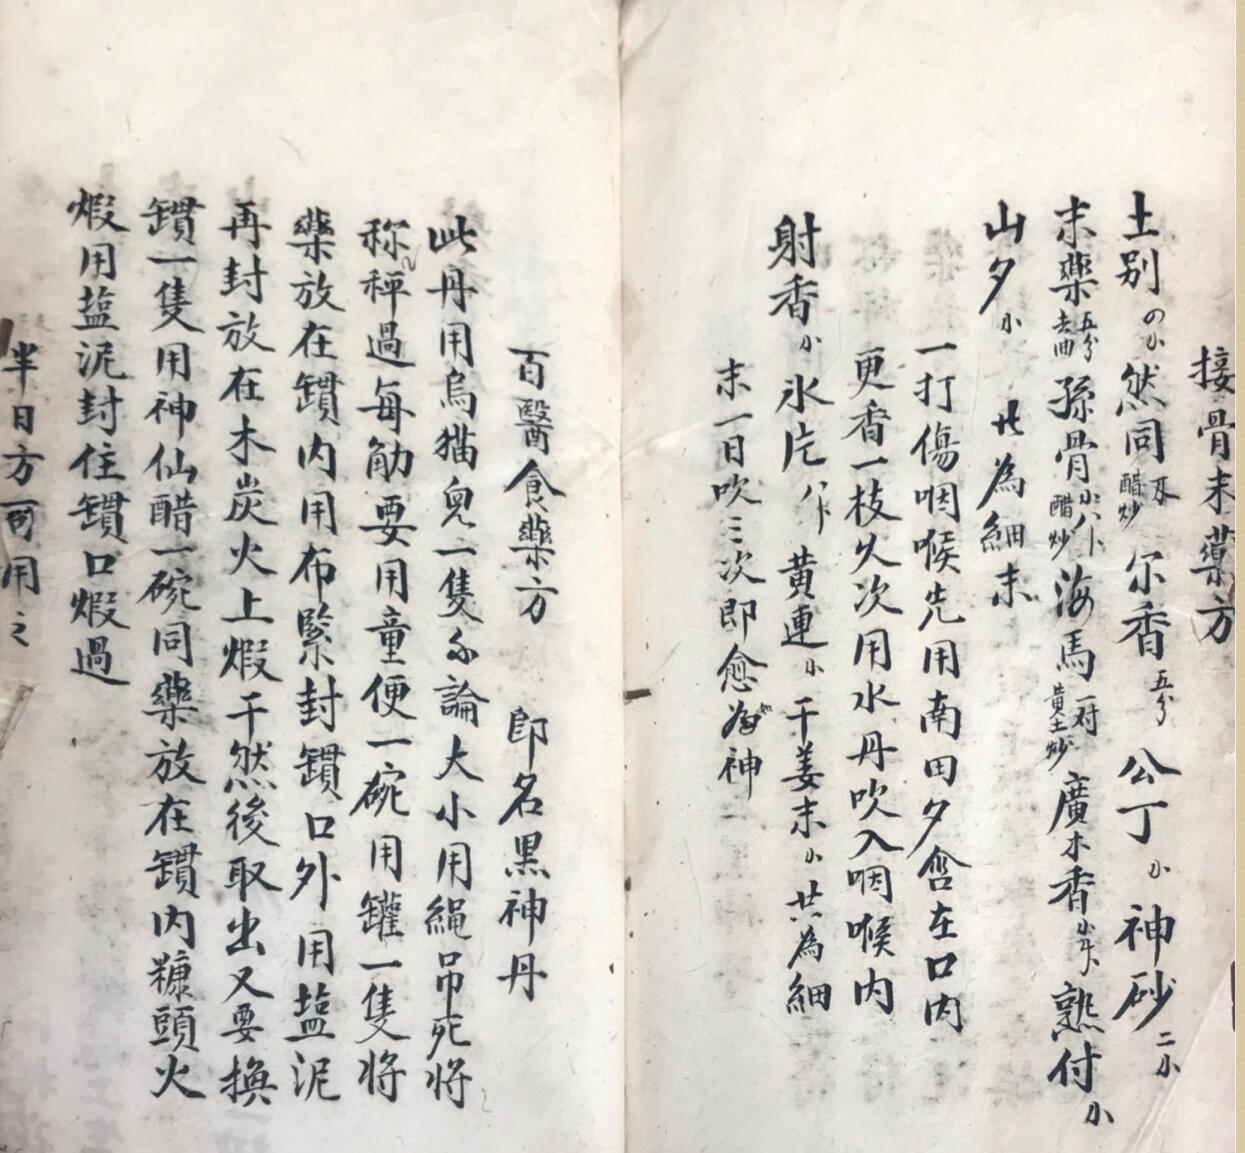 接骨末藥方
土别 然同 醋炒 尔香 五分 公丁 神砂 二
末藥 五分 去油 孫骨 醋炒 海馬 一对 黄土炒 廣木香 熟付
山夕 共為細末
一打傷咽喉先用南田夕含在口内
更香一枝久次用水丹吹入咽喉内
射香 氷片 黄連 干姜末 共為細
末一日吹三次即愈為神
百醫食藥方 即名黑神丹
此丹用烏猫兒一隻不論大小用繩吊死将
称秤過每觔要用童便一碗用罐一隻将
藥放在鑵内用布緊封鑵口外用塩泥
再封放在木炭火上煆干然後取出又要换
鑵一隻用神仙醋一碗同藥放在鑵内糠頭火
煆用塩泥封住鑵口煆過
半日方可用之